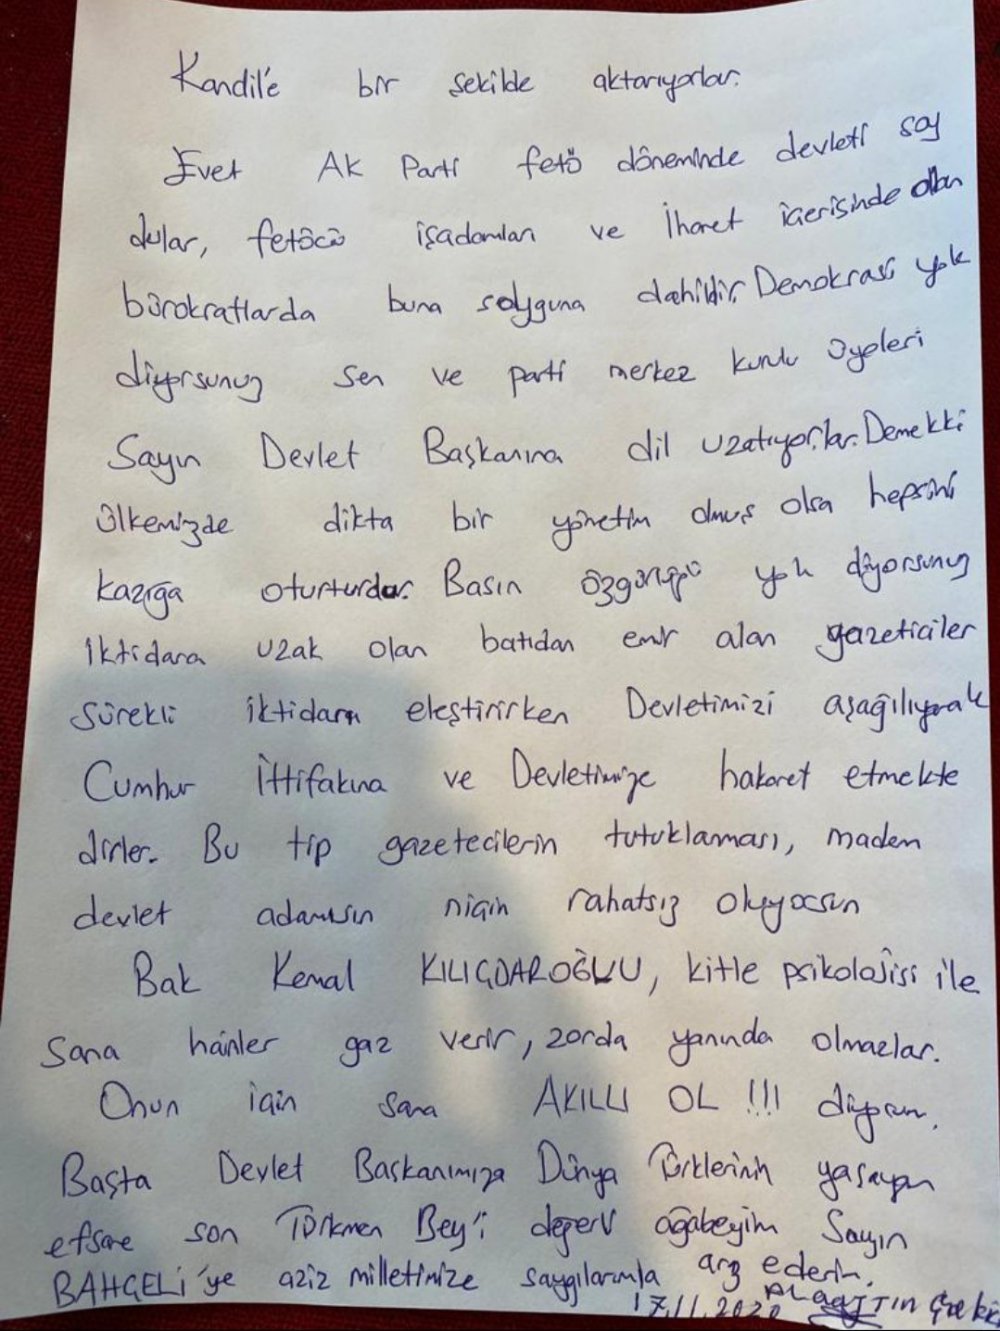 Kandil'e bir şekilde aktarıyorlar.
Evet AK Parti fetö döneminde devleti soy
dular, fetöcü işadamları ve İhanet içerisinde olan
bürokratlarda buna soyguna dahildir. Demokrasi yok
diyorsunuz sen ve parti merkez kurulu üyeleri
Sayın Devlet Başkanına dil uzatıyorlar. Demekki
ülkemizde dikta bir yönetim olmuş olsa hepsini
kazığa oturturdar. Basın özgürlüğü yok diyorsunuz
iktidara uzak olan batıdan emir alan gazeticiler
sürekli iktidarı eleştirirken Devletimizi aşağılıyarak
Cumhur İttifakına ve Devletimize hakaret etmekte
dirler. Bu tip gazetecilerin tutuklaması, madem
devlet adamısın niçin rahatsız oluyorsun
Bak Kemal KILIÇDAROĞLU, kitle psikolojisi ile
Sana hainler gaz verir, zorda yanında olmazlar.
Onun için sana AKILLI OL !!! diyorum.
Başta Devlet Başkanımıza Dünya Türklerinin yaşayan
efsane son Türkmen Bey'i değerli ağabeyim Sayın
BAHÇELİ'ye aziz milletimize saygılarımla arz ederim.
17.11.2020 ALAATTİN Çakıcı